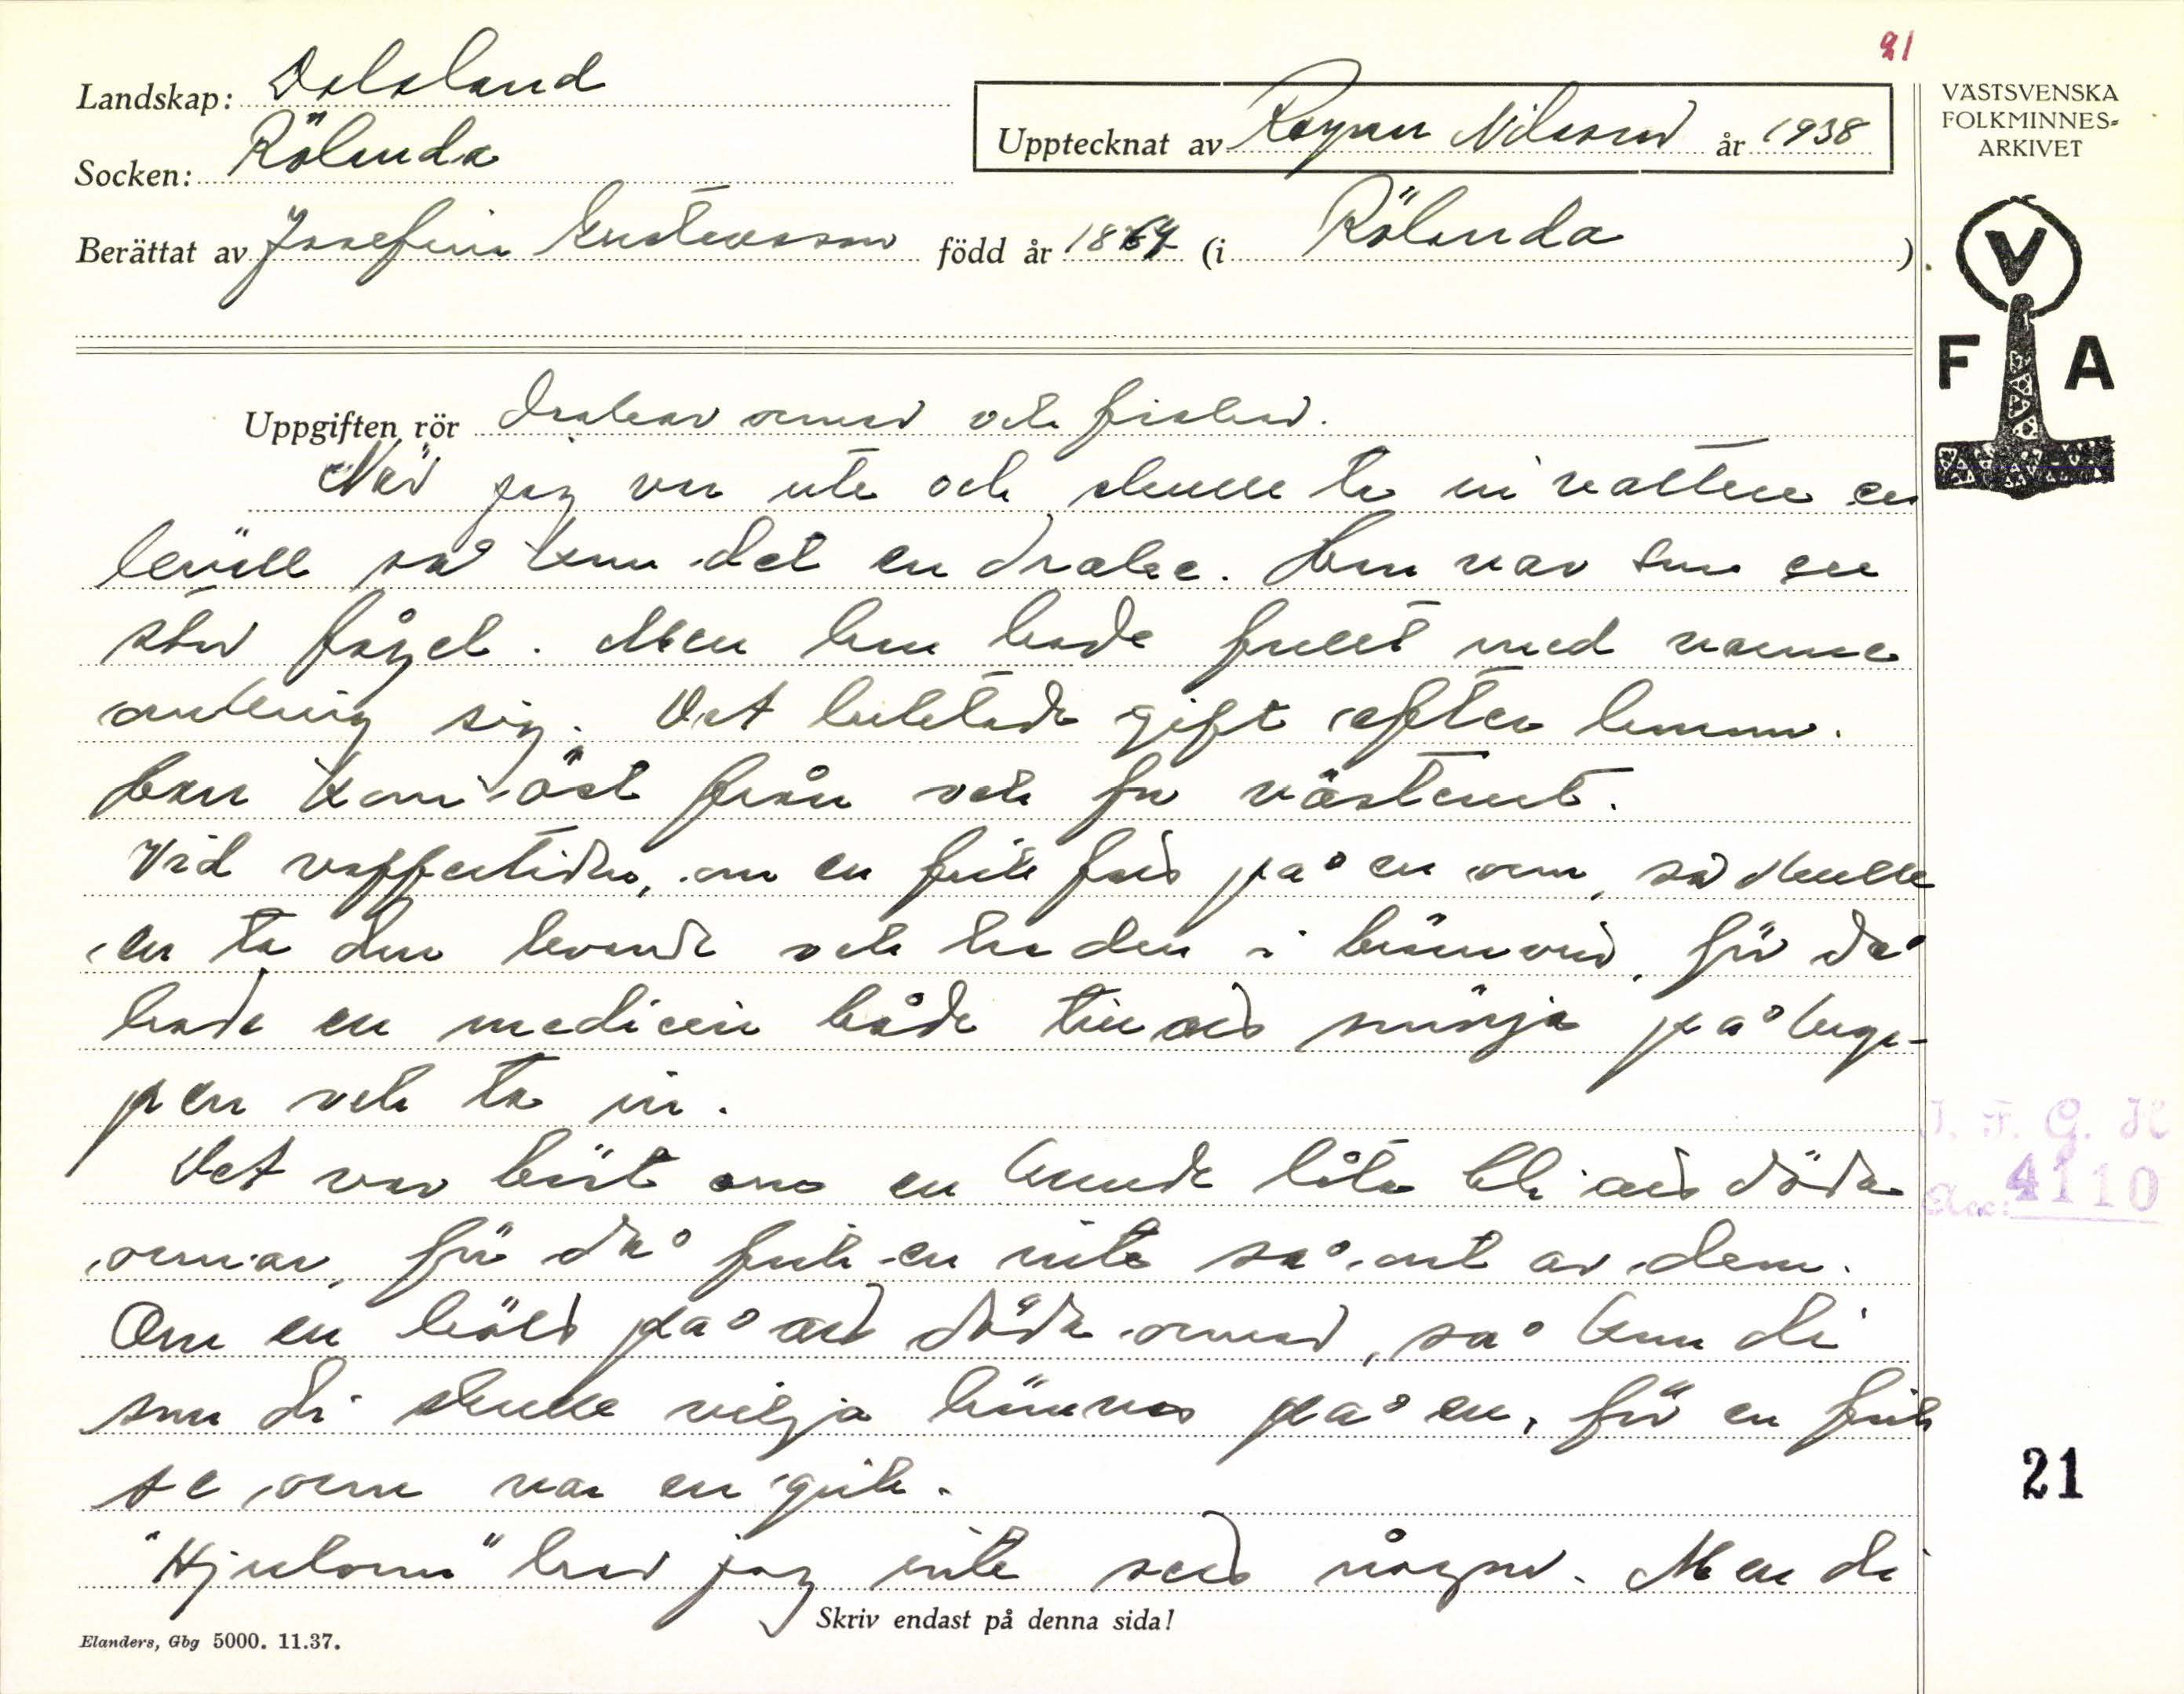 21
Landskap: Dalsland
Socken: Rölanda
Upptecknat av Ragnar Nilsson år 1938
Berättat av Josefina Gustavsson född år 1864 (i Rölanda)
VÄSTSVENSKA
FOLKMINNES-
ARKIVET
V
F A
Uppgiften rör drakar ormar och fiskar.
När jag var ute och skulle ta in vatten en
kväll så kom det en drake. Han var som en
stor fågel. Men han hade fullt med varme
omkring sig. Det luktade gift after honom.
Han kom öst från och for västerut.
Vid vaffertiden, om en fick fatt på en orm, så skulle
en ta den levande och ha den i brännvin, för då
hade en medicin både till att smörja på krop-
pen och ta in.
Det var bäst om en kunde låta bli att döda
ormar, för då fick en inte så ont av dem.
Om en höll på att döda ormar, så kom di
som di skulle vilja hämnas på en, för en fick
se orm var en gick.
"Hjulorm" har jag inte sett någon. Men di
Skriv endast på denna sida!
Elanders, Gbg 5000. 11.37.
I. F. G. H
Acc: 4110
21